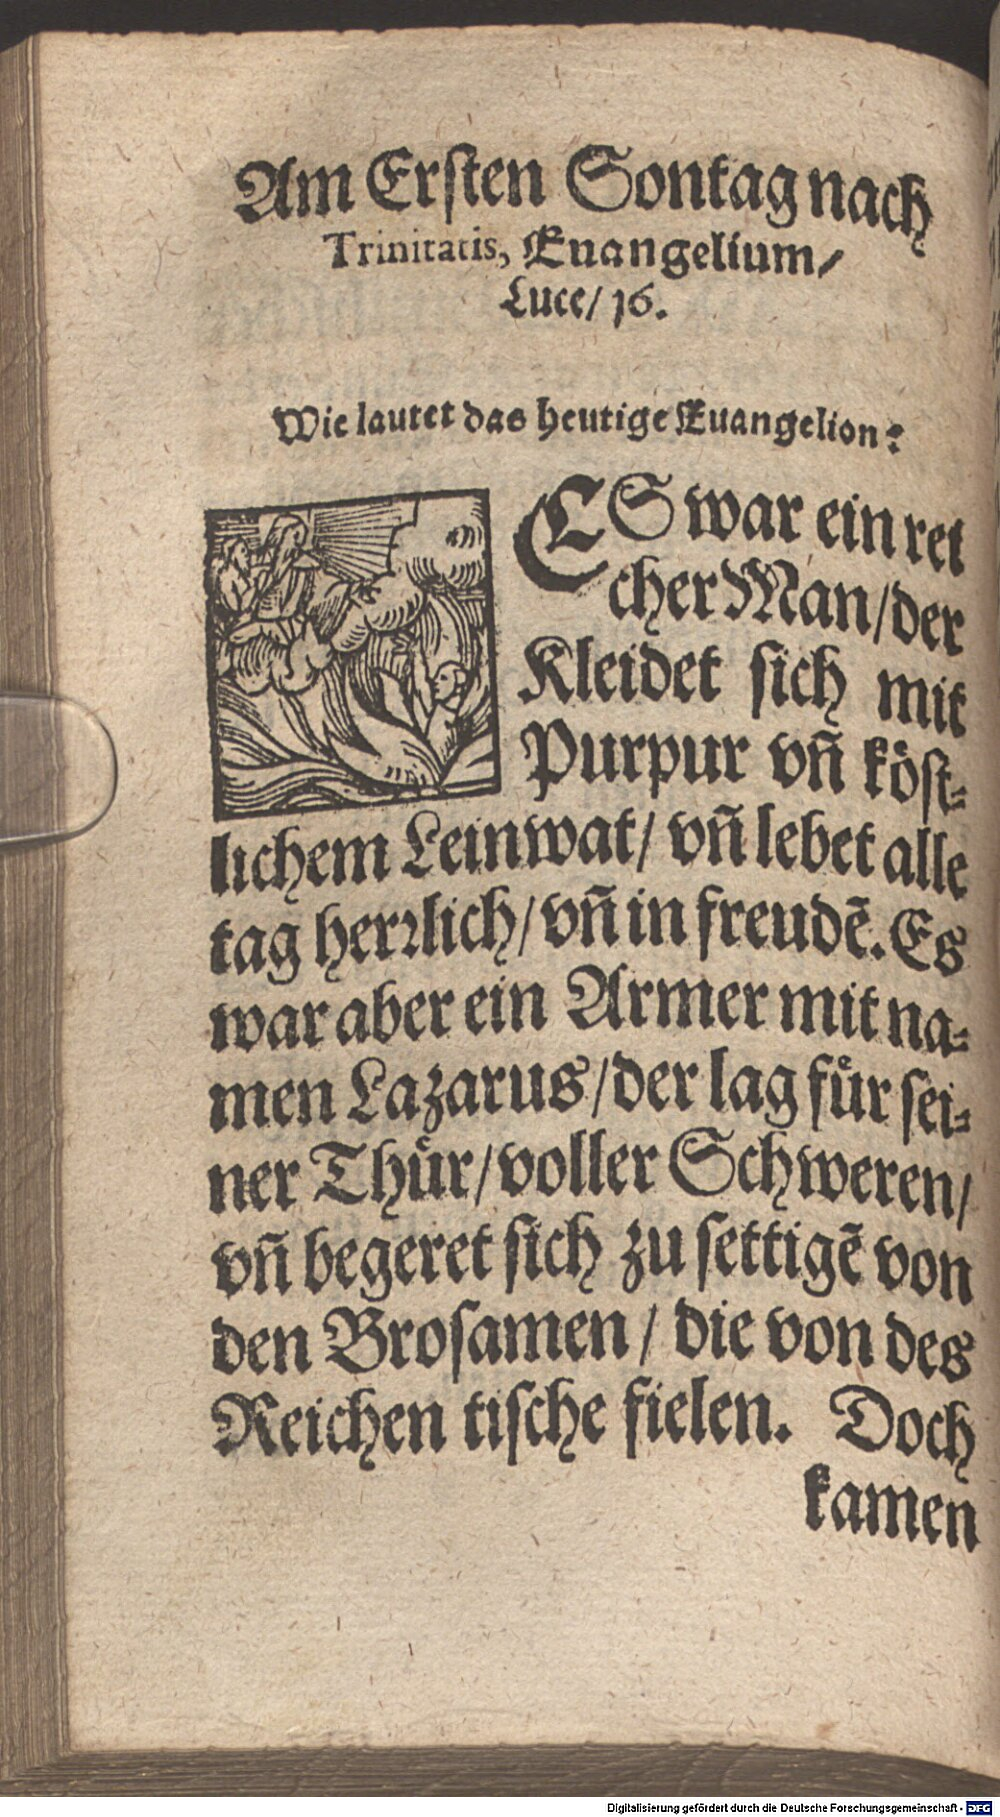 Am Erſten Sontag nach
Trinitatis, Euangelium/
Luce/ 16.
Wie lautet das heutige Euangelion?
ES war ein rei
cher Man/der
Kleidet ſich mit
Purpur vñ koͤſt-
lichem Leinwat/ vñ lebet alle
tag herꝛlich/vñ in freudẽ. Es
war aber ein Armer mit na-
men Lazarus/der lag fuͤr ſei-
ner Thuͤr/voller Schweren/
vñ begeret ſich zu ſettigẽ von
den Broſamen/ die von des
Reichen tiſche fielen. Doch
kamen
Digitalisierung gefördert durch die Deutsche Forschungsgemeinschaft - DFG